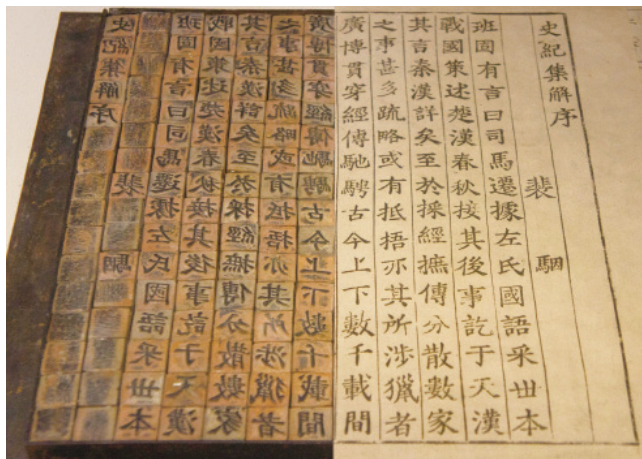 史紀集解序
裴駰
班固有言曰司馬遷據左氏國語采世本
戰國策述楚漢春秋接其後事訖于天漢
其吉秦漢詳矣至於採經摭傳分散數家
之事甚多疏略或有抵捂亦其所涉獵者
廣博貫穿經傳馳騁古今上下數千載間